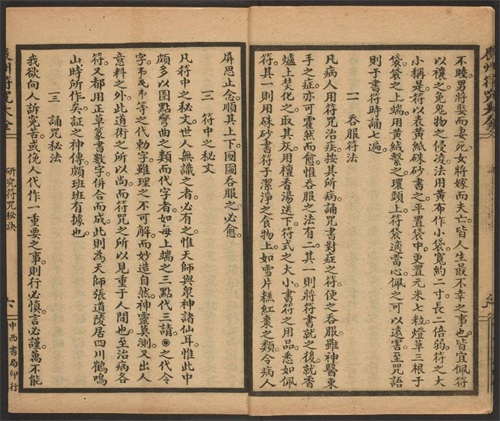 不睦男將娶而妻死女將嫁而夫亡皆人生最不幸之事也皆宜佩符
以禳之免鬼物之侵凌法用黃布作小袋寬約二寸長一倍弱符之大
小稱是符以表黃紙硃砂書之平置袋中更置元米七粒燈草三根于
袋袋之上端用黃絨繫之環頸上符袋適當心佩之可以遠害至咒語
則于書符時誦之一遍
二 吞服符法
凡病人用符咒治疾按其所病誦咒書對症之符使之吞服雖神醫束
手之症亦可霍然而愈惟吞服之法有二其一則將符書就之後就香
爐上焚化之取其灰用檀香湯送下符式之大小書符之用品悉如佩
符其一則用硃砂書符于潔淨之食物上如雪片糕紅棗之類令病人
屏思止念順其上下囫圇吞服之必愈
三 符中之秘文
凡符中之秘文世人無識之者必有之惟天師與眾神諸仙耳惟此中
頗多以圈點彎曲之類而代字者如每上端之三點代三請◉之代令
字等之代勅字雖理之不可解而妙造自然神靈莫測又出人
意料之外此道術之所以高而符咒之所以見重于人間也至治病各
符又都用正草篆書數字併合而成此則為天師張道陵居四川鶴鳴
山時所作矣証之神傳頗班班有據也
三 誦咒秘法
我欲向人訴冤苦或俛人代作一重要之事則行必慎言必謹萬不能
研究符咒秘訣
六
中西書局印行